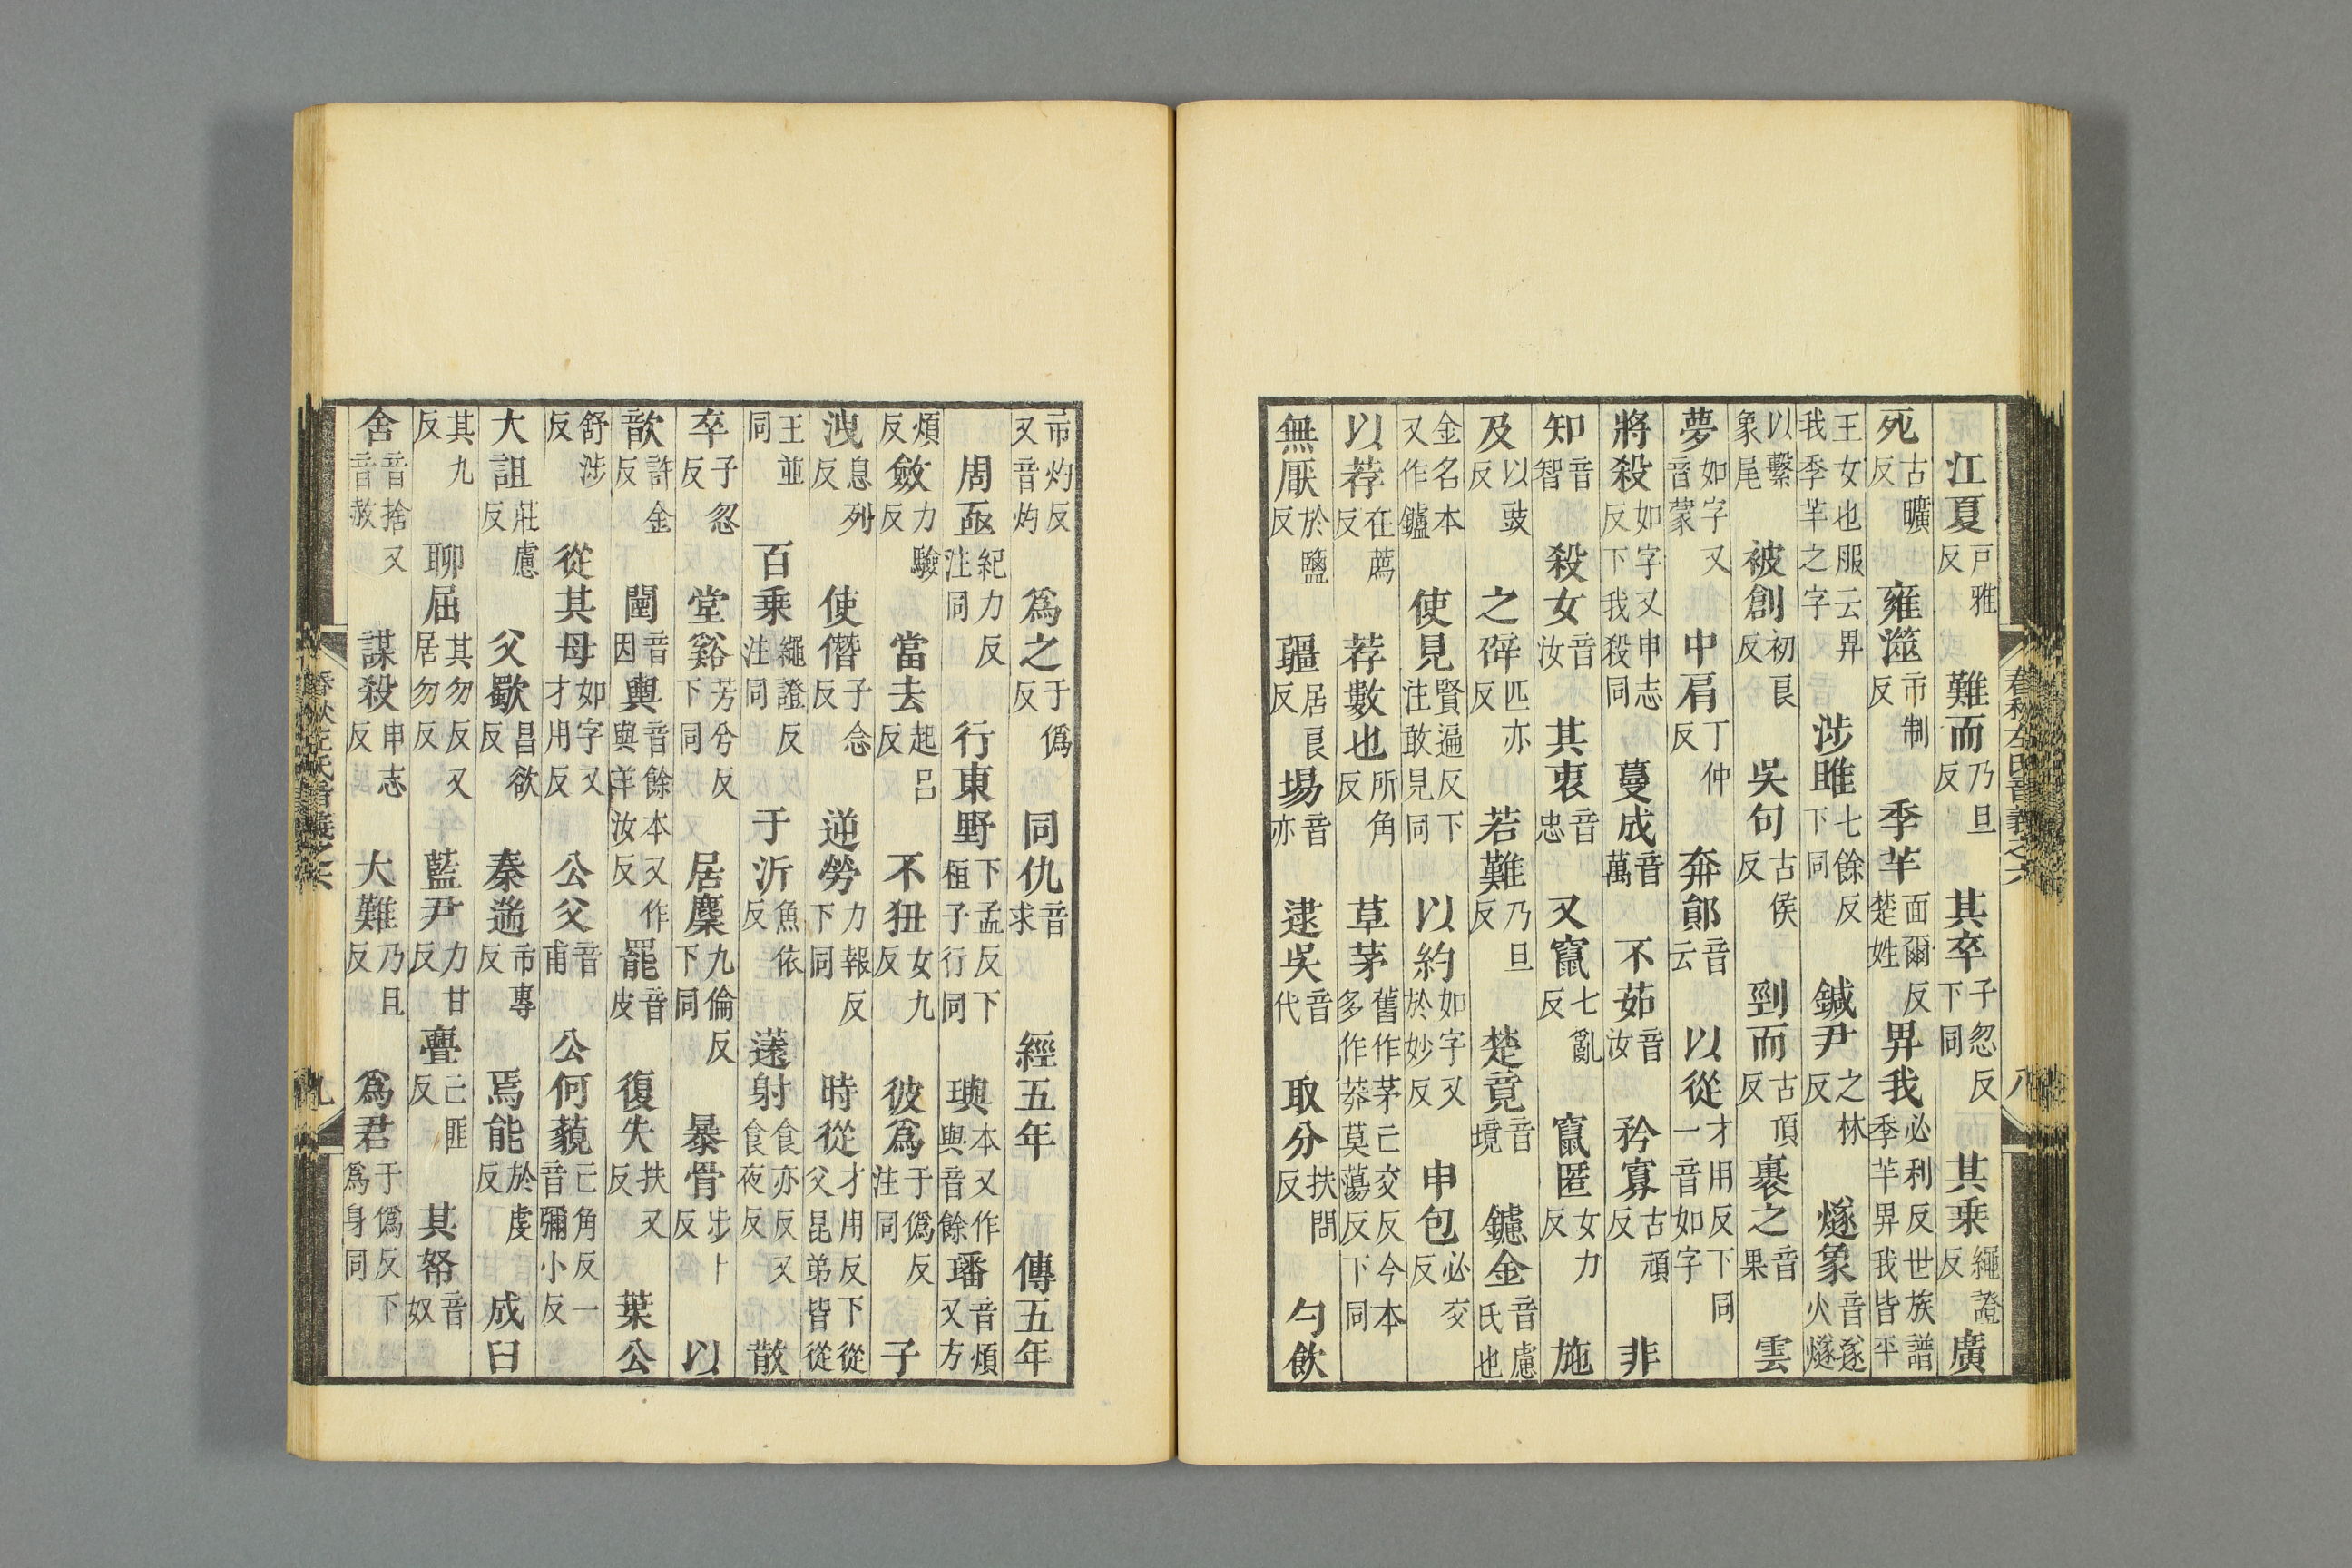 江夏戶雅反難而乃旦反其卒子忽反下同其乘繩證反廣
死古曠反雍澨市制反季羋面爾反楚姓畀我必利反世族譜季羋畀我皆平
王女也服云畀我季羋之字涉雎七餘反下同鍼尹之林反燧象音遂火燧
以繫象尾被創初良反吳句古侯反剄而古頂反裹之音果雲
夢如字又音蒙中肩丁仲反奔鄖音云以從才用反下同一音如字
將殺如字又申志反下我殺同蔓成音萬不茹音汝矜寡古頑反非
知音智殺女音汝其衷音忠又竄七亂反竄匿女力反施
及以豉反之辟匹亦反若難乃旦反楚竟音境鑢金音慮氏也
金名本又作鑪使見賢遍反下注敢見同以約如字又於妙反申包必交反
以荐在薦反荐數也所角反草茅舊作茅亡交反今本多作莽莫蕩反下同
無厭於鹽反疆居良反埸音亦逮吳音代取分扶問反勺飲
春秋左氏音義之六
八
市灼反又音灼爲之于僞反同仇音求經五年傳五年
周亟紀力反注同行東野下孟反下桓子行同璵本又作與音餘璠音煩又方
煩反斂力驗反當去起呂反不狃女九反彼爲于僞反注同子
洩息列反使僭子念反逆勞力報反下同時從才用反下從父昆弟皆從
王並同百乘繩證反注同于沂魚依反薳射食亦反又食夜反散
卒子忽反堂谿芳兮反下同居麇九倫反下同暴骨步卜反以
歆許金反闉音因輿音餘本又作與羊汝反罷音皮復失扶又反葉公
舒涉反從其母如字又才用反公父音甫公何藐亡角反一音彌小反
大詛莊慮反父歜昌欲反秦遄市專反焉能於虔反成臼
其九反聊屈其勿反又居勿反藍尹力甘反亹亡匪反其帑音奴
舍音捨又音赦謀殺申志反大難乃旦反爲君于僞反下爲身同
春秋左氏音義之六
九